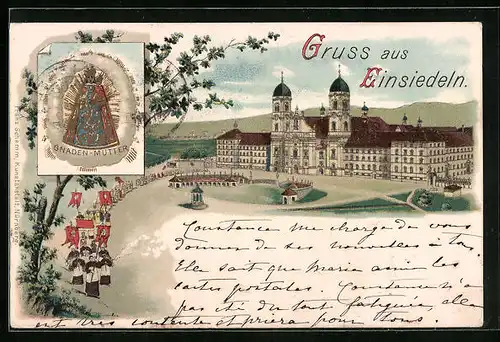 Gruss aus
Einsiedeln.
GNADEN-MUTTER
Constance me charge de vous
donner de ses nouvelles à ta
Elle sait que Marie aime les
cartes postales. Constance n'a
pas été du tout fatiguée, elle
est très contente et priera pour tous.